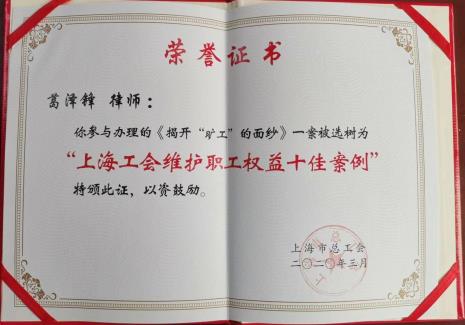 荣誉证书
葛泽锋 律师：
你参与办理的《揭开“旷工”的面纱》一案被选树为
“上海工会维护职工权益十佳案例”
特颁此证，以资鼓励。
上海市总工会
二〇二〇年三月